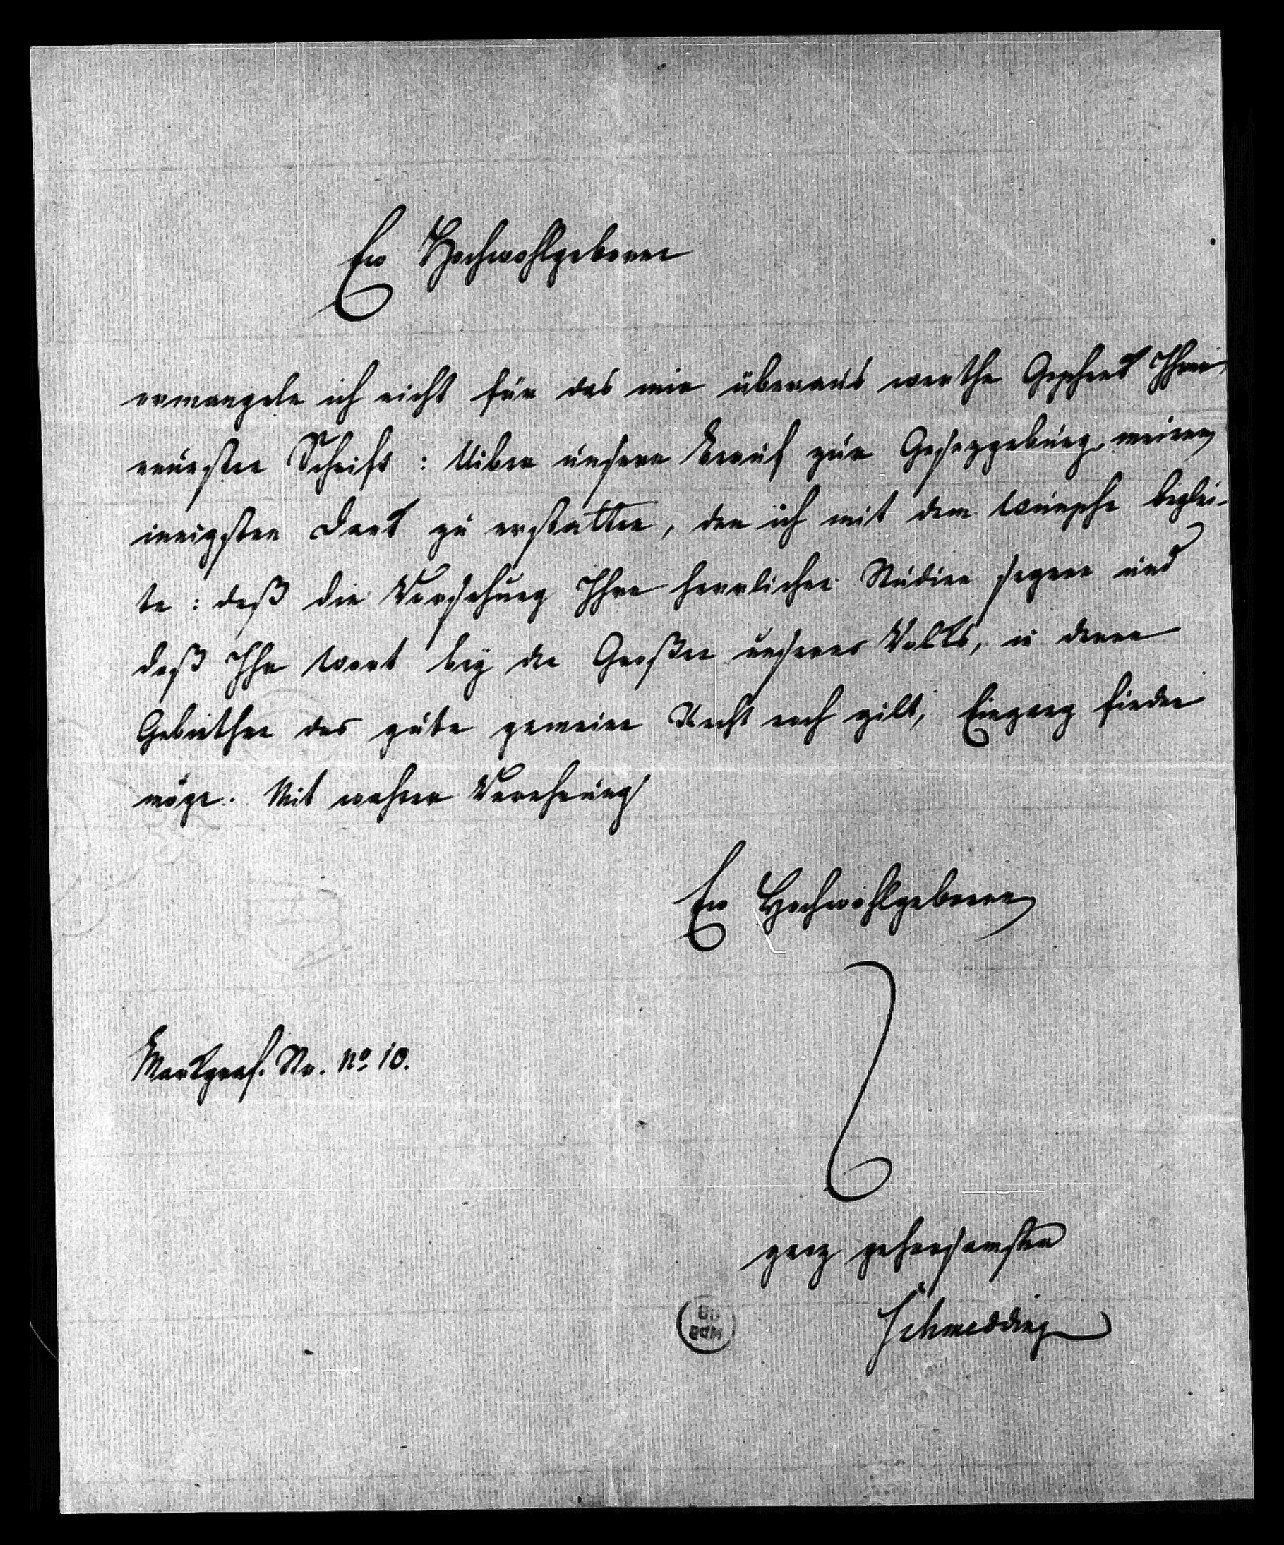 Ew Hochwohlgeboren
ermangele ich nicht für das mir überaus werthe Geschenk Ihrer
neuesten Schrift: Uiber unsern Beruf zur Gesezgebung, meinen
innigsten Dank zu erstatten, den ich mit dem Wunsche beglei-
te: daß die Vorsehung Ihre herrlichen Studien segnen und
daß Ihr Wort bey den Großen unseres Volks, in deren
Gebiethen das gute gemeine Recht noch gilt, Eingang finden
möge. Mit wahrer Verehrung
Ew Hochwohlgeboren
Markgraf. Str. No 10.
ganz gehorsamster
Schmedding